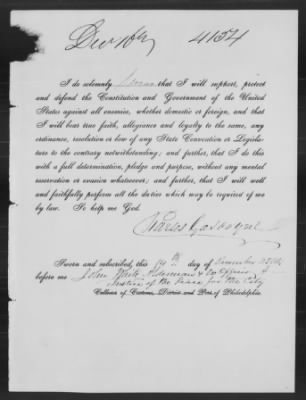 4154
I do solemnly swear that I will support, protect
and defend the Constitution and Government of the United
States against all enemies, whether domestic or foreign, and that
I will bear true faith, allegiance and loyalty to the same, any
ordinance, resolution or law of any State Convention or Legisla-
ture to the contrary notwithstanding; and further, that I do this
with a full determination, pledge and purpose, without any mental
reservation or evasion whatsoever; and further, that I will well
and faithfully perform all the duties which may be required of me
by law. So help me God.
Charles
Sworn and subscribed, this day of
before me John Alderman & Ex officio
Justice of the Peace for the City
Collector of Customs, District and Port of Philadelphia.